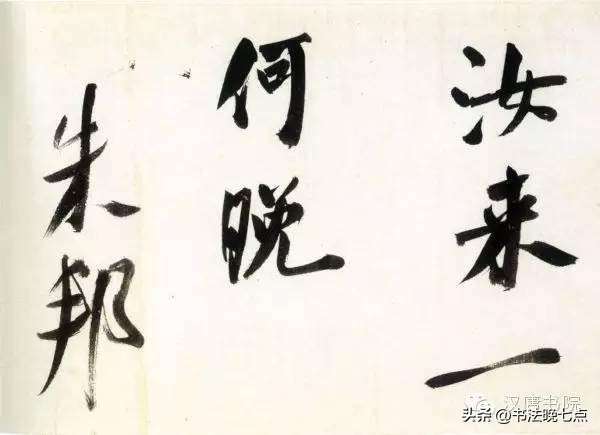 汝来一
何晚
朱邦
汉唐书院
头条@书法晚七点